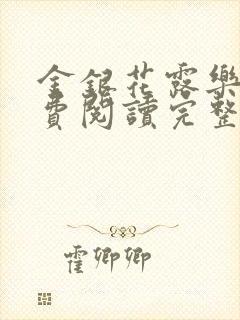 金銀花露樂
費閱讀完整
霍卿卿